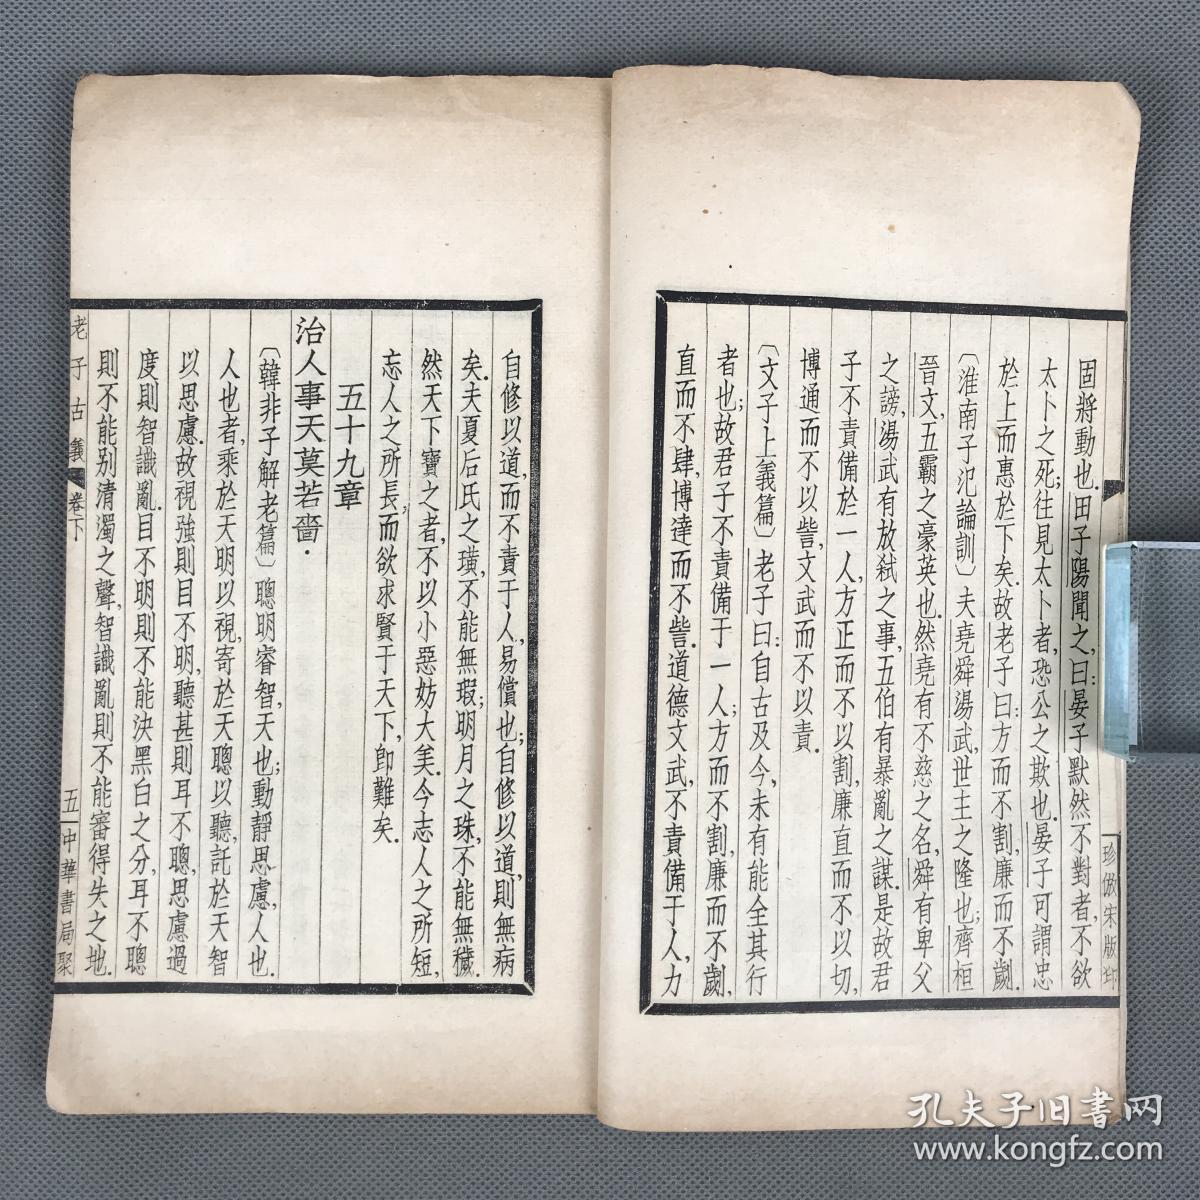 固將動也.田子陽聞之,曰:晏子默然不對者,不欲
太卜之死;往見太卜者,恐公之欺也.晏子可謂忠
於上而惠於下矣.故老子曰:方而不割,廉而不劌.
〔淮南子氾論訓〕夫堯舜湯武,世主之隆也;齊桓
晉文,五霸之豪英也.然堯有不慈之名,舜有卑父
之謗,湯武有放弒之事,五伯有暴亂之謀.是故君
子不責備於一人,方正而不以割,廉直而不以切,
博通而不以訾,文武而不以責.
〔文子上義篇〕老子曰:自古及今,未有能全其行
者也;故君子不責備于一人;方而不割,廉而不劌,
直而不肆,博達而不訾.道德文武,不責備于人,力
珍倣宋版印
自修以道,而不責于人,易償也;自修以道,則無病
矣.夫夏后氏之璜,不能無瑕;明月之珠,不能無穢.
然天下寶之者,不以小惡妨大美.今志人之所短,
忘人之所長,而欲求賢于天下,即難矣.
五十九章
治人事天莫若嗇.
〔韓非子解老篇〕聰明睿智,天也;動靜思慮,人也.
人也者,乘於天明以視,寄於天聰以聽,託於天智
以思慮.故視強則目不明,聽甚則耳不聰,思慮過
度則智識亂.目不明則不能決黑白之分,耳不聰
則不能別清濁之聲,智識亂則不能審得失之地.
老子古義 卷下 五一 中華書局聚
孔夫子旧书网
www.kongfz.com